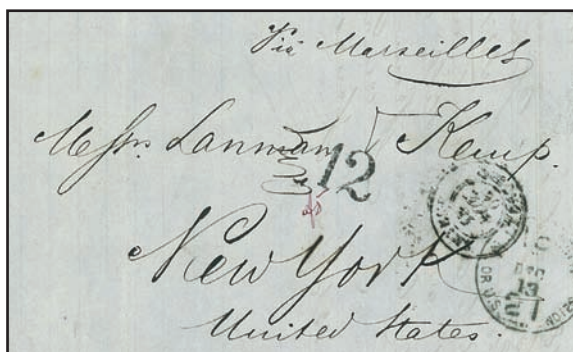 Via Marseilles
Messrs. Lanman & Kemp.
12
New York
United States.
DEC
13